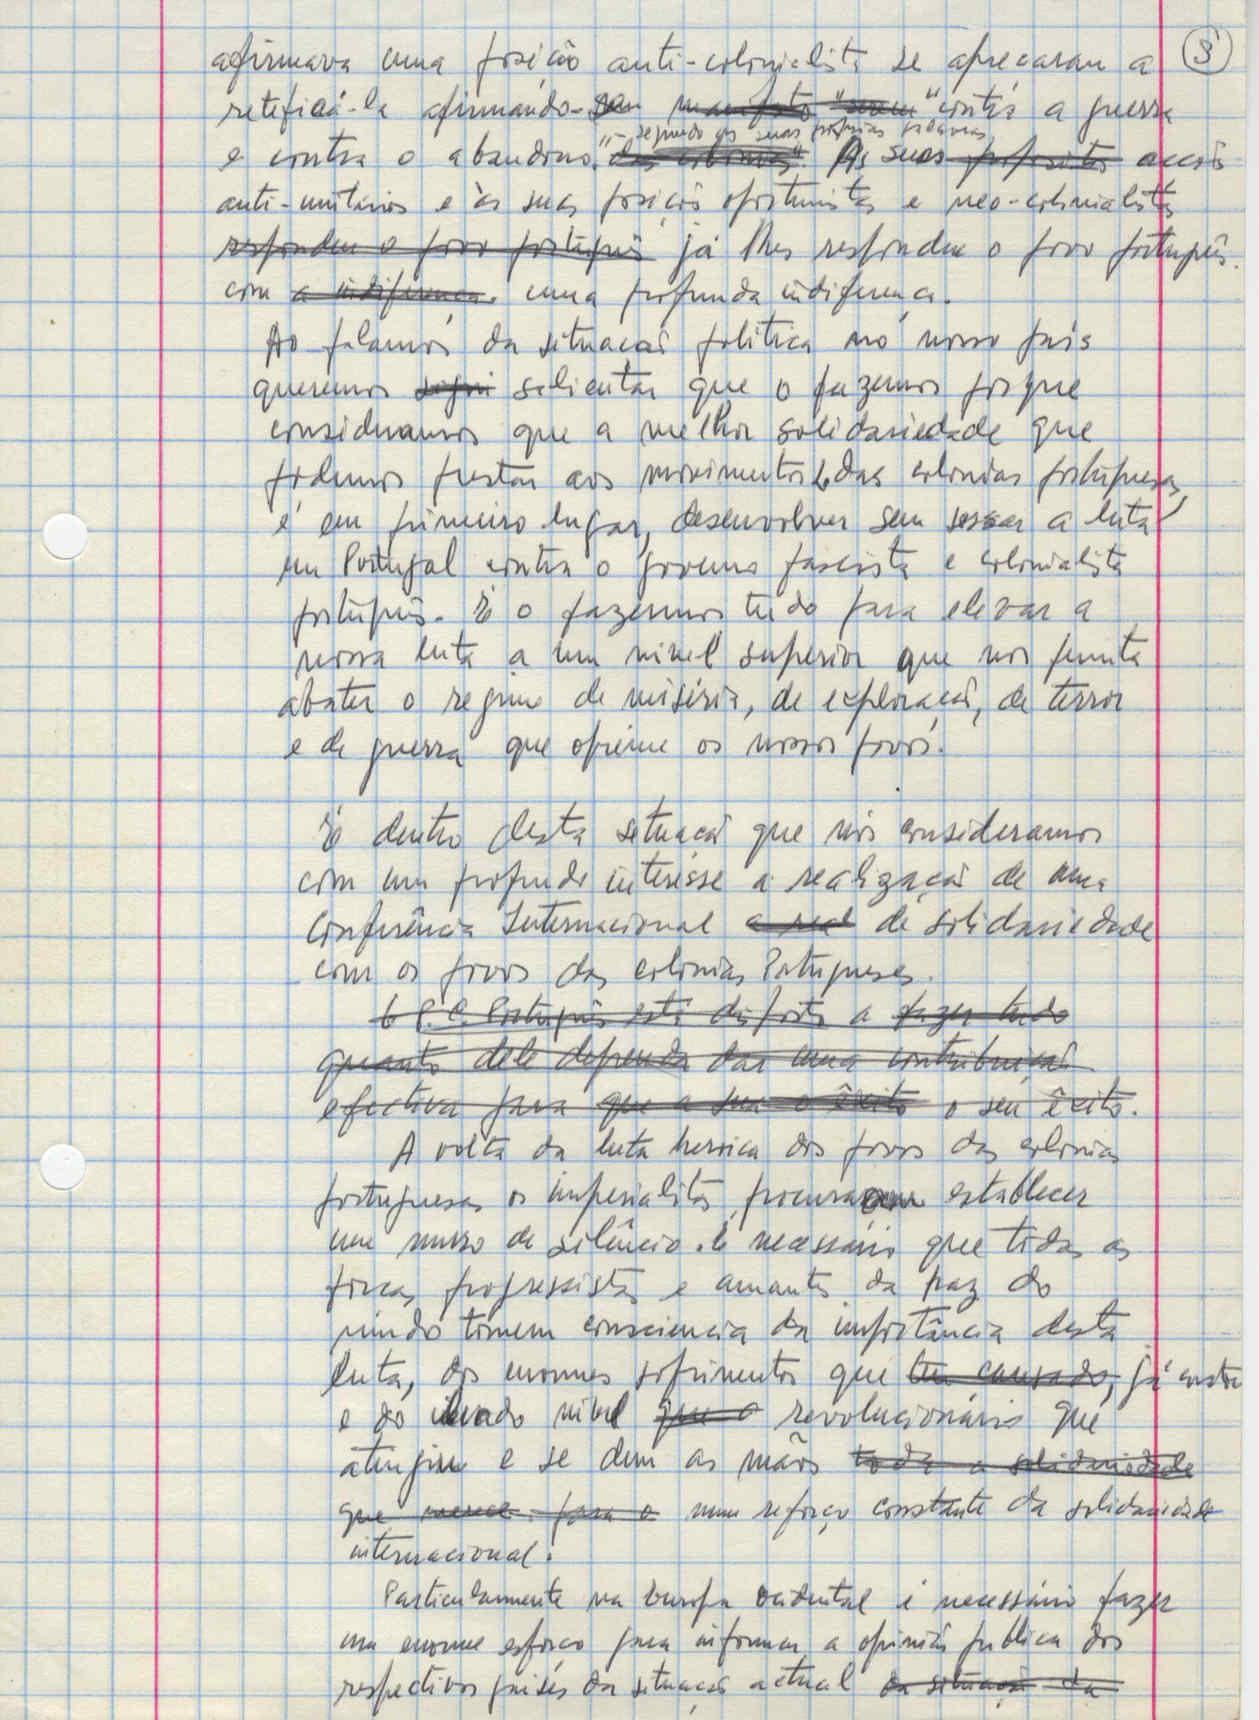 afirmava uma posição anti-colonialista se apreçaram a 3
retificá-la afirmando-se "contra a guerra
"segundo as suas próprias palavras
e contra o abandono". Às suas acções
anti-unitárias e às suas posições oportunistas e neo-colonialistas
respondeu o povo português já lhes respondeu o povo português
com a indiferença. uma profunda indiferença.
Ao falarmos da situação política no nosso país
queremos salientar que o fazemos porque
consideramos que a melhor solidariedade que
podemos prestar aos movimentos das colonias portuguesas,
é em primeiro lugar, desenvolver sem sessar a luta
em Portugal contra o governo fascista e colonialista
português. É o fazermos tudo para elevar a
nossa luta a um nivel superior que nos permita
abater o regime de miséria, de exploração, de terror
e de guerra que oprime os nossos povos.
É dentro desta situação que nós consideramos
com um profundo interesse a realização de uma
Conferência Internacional a real de solidariedade
com os povos das colonias Portuguesas.
O P.C. Português está disposto a fazer tudo
quanto dele dependa dar uma contribuição
efectiva para que a sua o êxito o seu êxito.
A volta da luta heroica dos povos das colonias
portuguesas os imperialistas procuram establecer
um muro de silêncio. É necessário que todas as
forças progressistas e amantes da paz do
mundo tomem consciencia da importância desta
luta, dos enormes sofrimentos que tem causado, já custou
e do elevado nivel que o revolucionário que
atingiu e se dem as mãos toda a solidariedade
que merece para o num reforço constante da solidariedade
internacional.
Particularmente na Europa ocidental é necessário fazer
um enorme esforço para informar a opinião publica dos
respectivos paises da situação actual da situação da